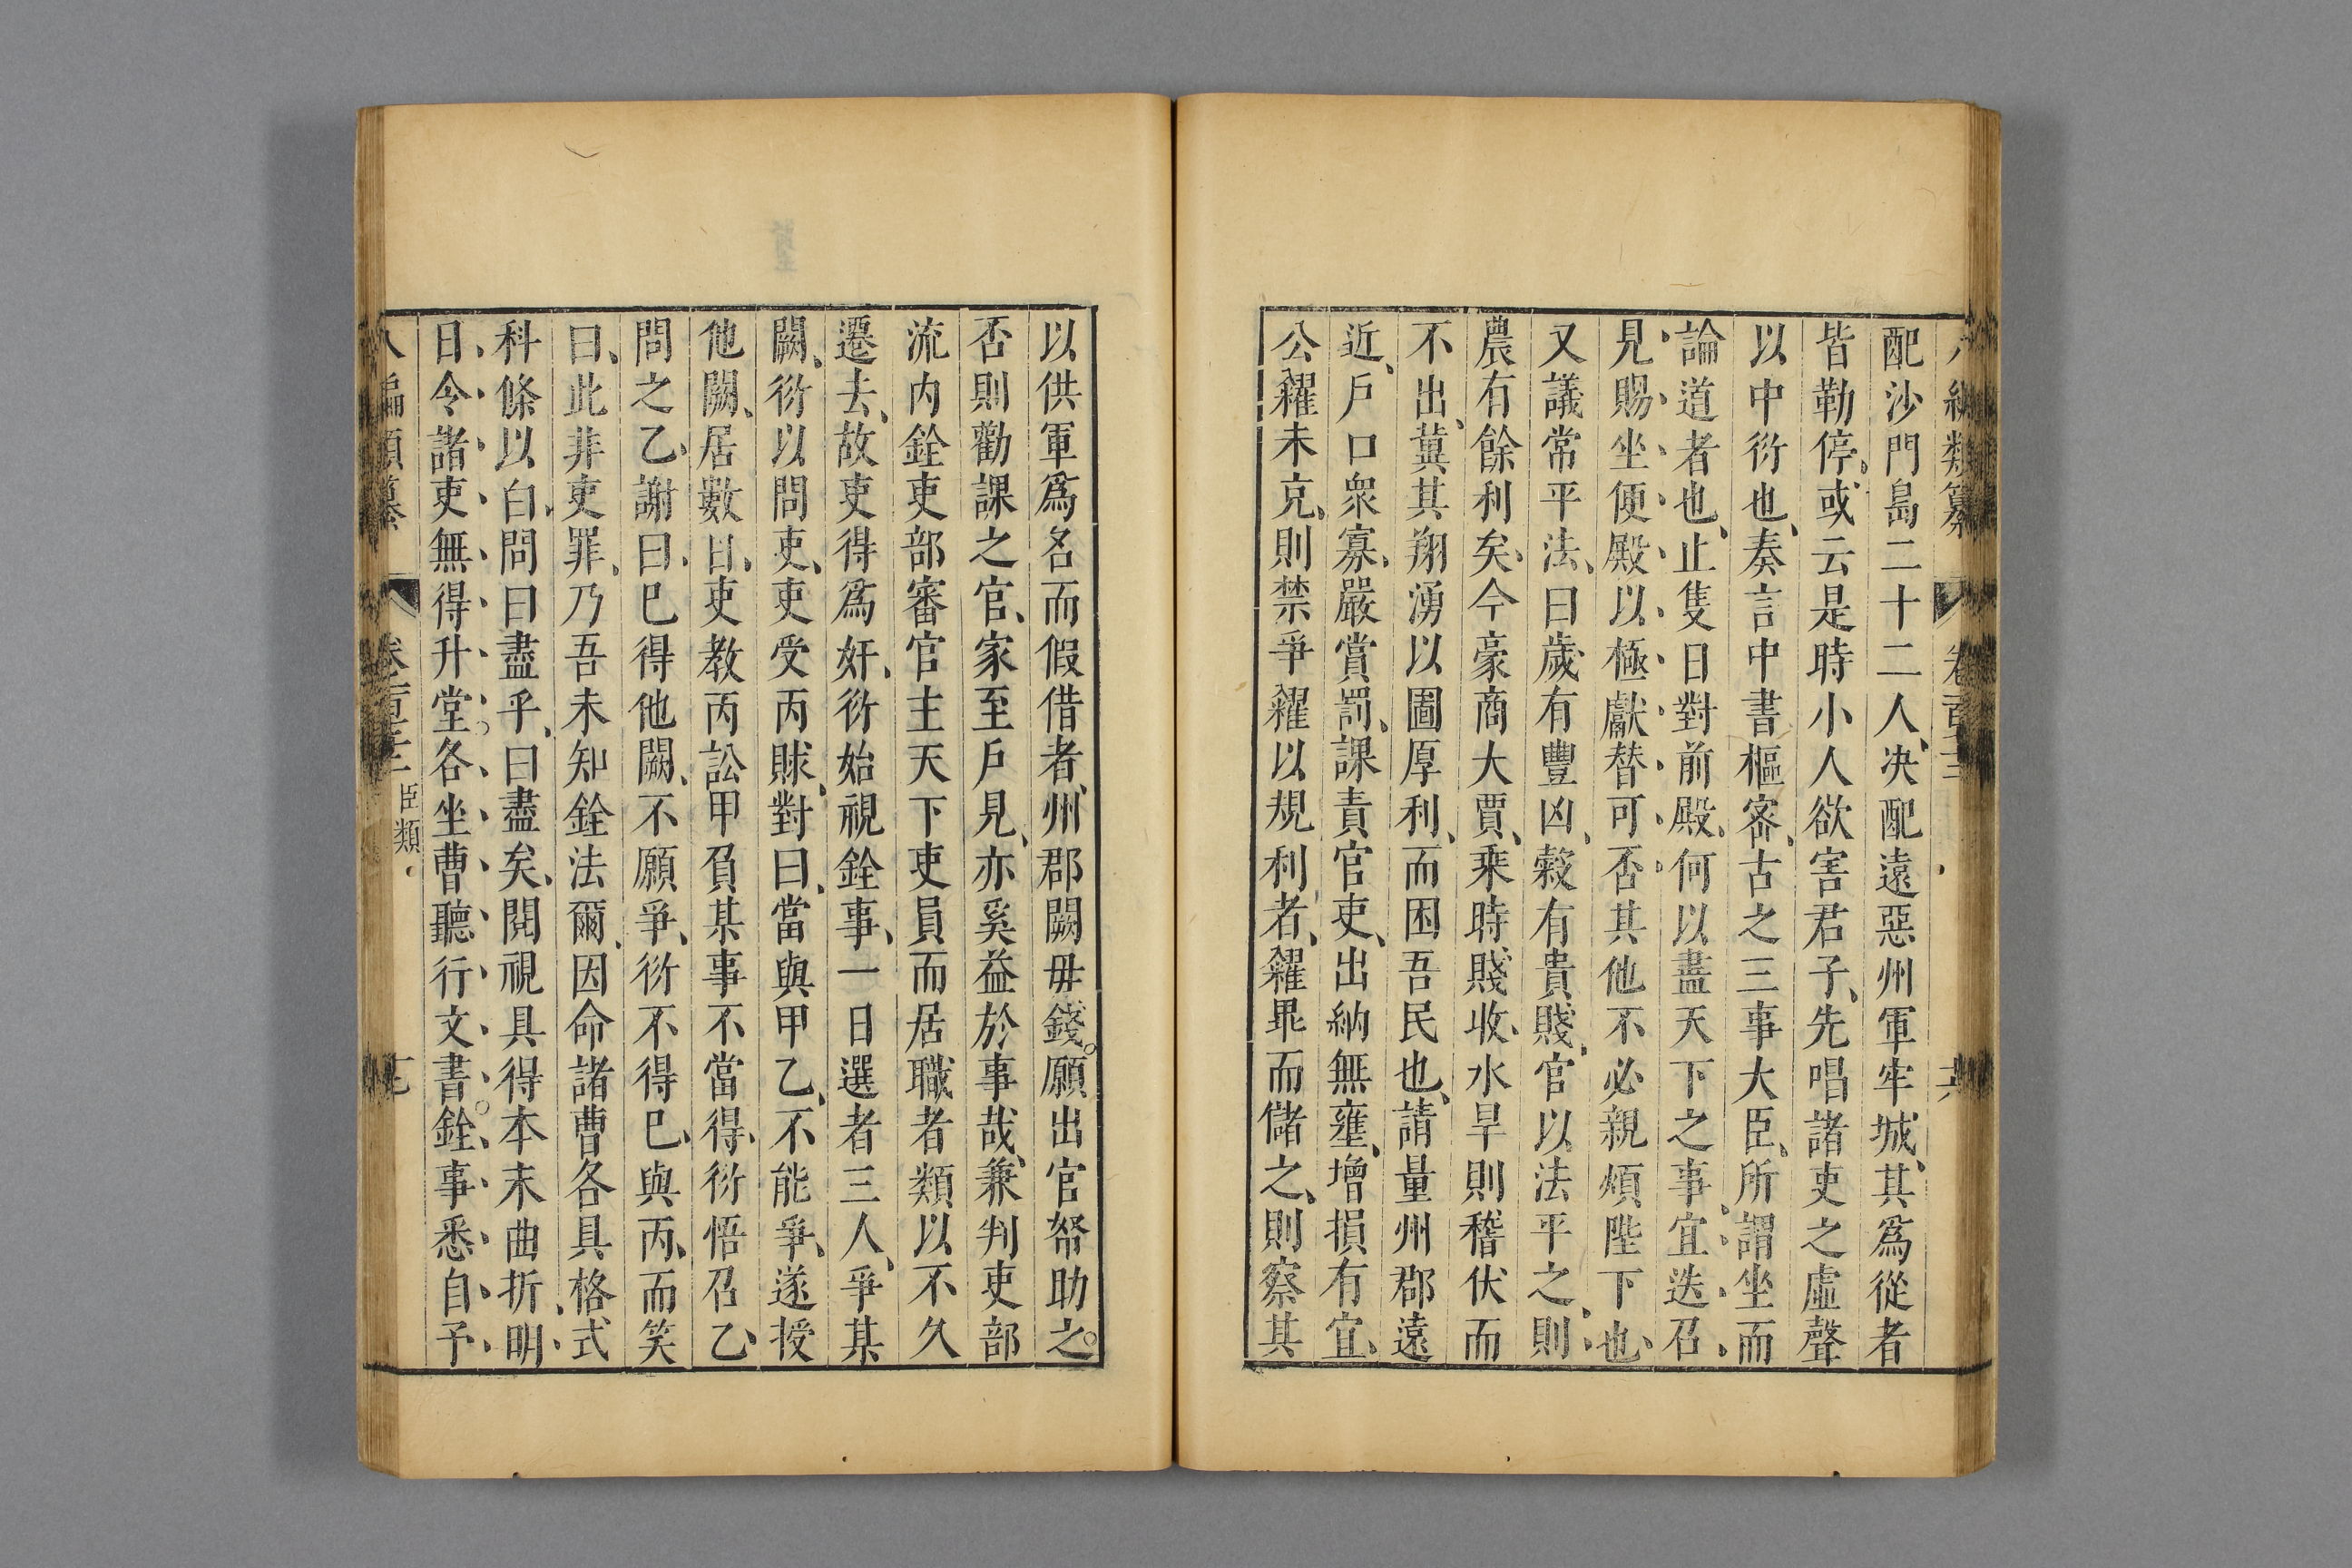 八編類纂 卷百三 六
配沙門島二十二人、决配遠惡州軍牢城、其爲從者
皆勒停。或云是時小人欲害君子、先唱諸吏之虛聲
以中衍也、奏言中書樞密、古之三事大臣、所謂坐而
論道者也、止隻日對前殿、何以盡天下之事、宜迭召、
見賜坐便殿以極獻替可否其他不必親煩陛下也、
又議常平法、曰歲有豐凶、穀有貴賤、官以法平之、則
農有餘利矣、今豪商大賈、乘時賤收、水旱則稽伏而
不出、冀其翔湧以圖厚利、而困吾民也、請量州郡遠
近、戶口衆寡、嚴賞罰、課責官吏、出納無壅、增損有宜、
公糴未充、則禁爭糴以規利者、糴畢而儲之、則察其
以供軍爲名而假借者、州郡闕毋錢。願出官帑助之。
否則勸課之官、家至戶見、亦奚益於事哉、兼判吏部
流内銓吏部審官主天下吏員而居職者類以不久
遷去、故吏得爲奸、衍始視銓事、一日選者三人、爭其
闕、衍以問吏、吏受丙賕、對曰、當與甲乙、不能爭、遂授
他闕、居數日、吏教丙訟甲負某事不當得、衍悟召乙、
問之乙、謝曰、巳得他闕、不願爭、衍不得巳、與丙、而笑
曰、此非吏罪、乃吾未知銓法爾、因命諸曹各具格式
科條以白、問曰盡乎、曰盡矣、閱視具得本末曲折、明、
日、令諸吏無得升堂。各坐曹聽行文書。銓事悉自予
八編類纂 臣類